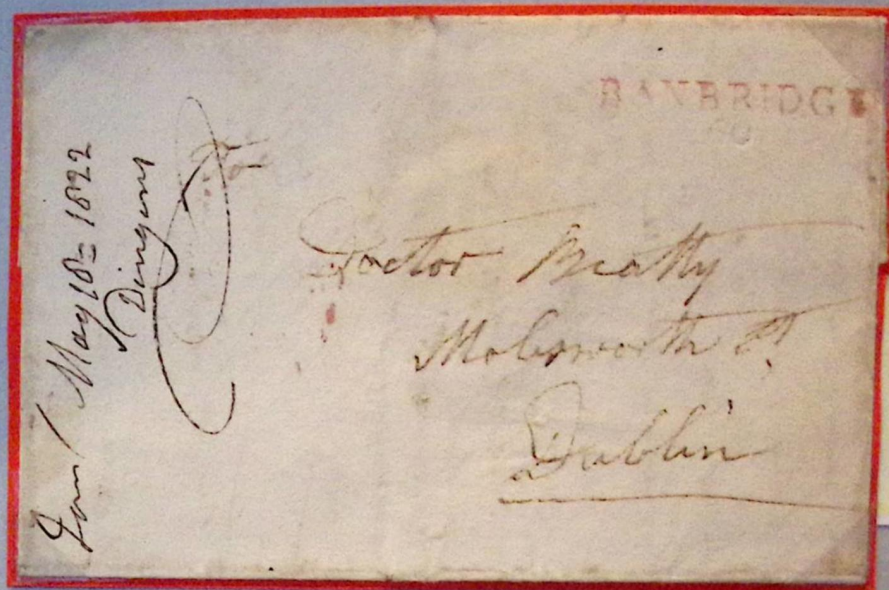 BANBRIDGE
Doctor Beatty
Molesworth St
Dublin
May 18 1822